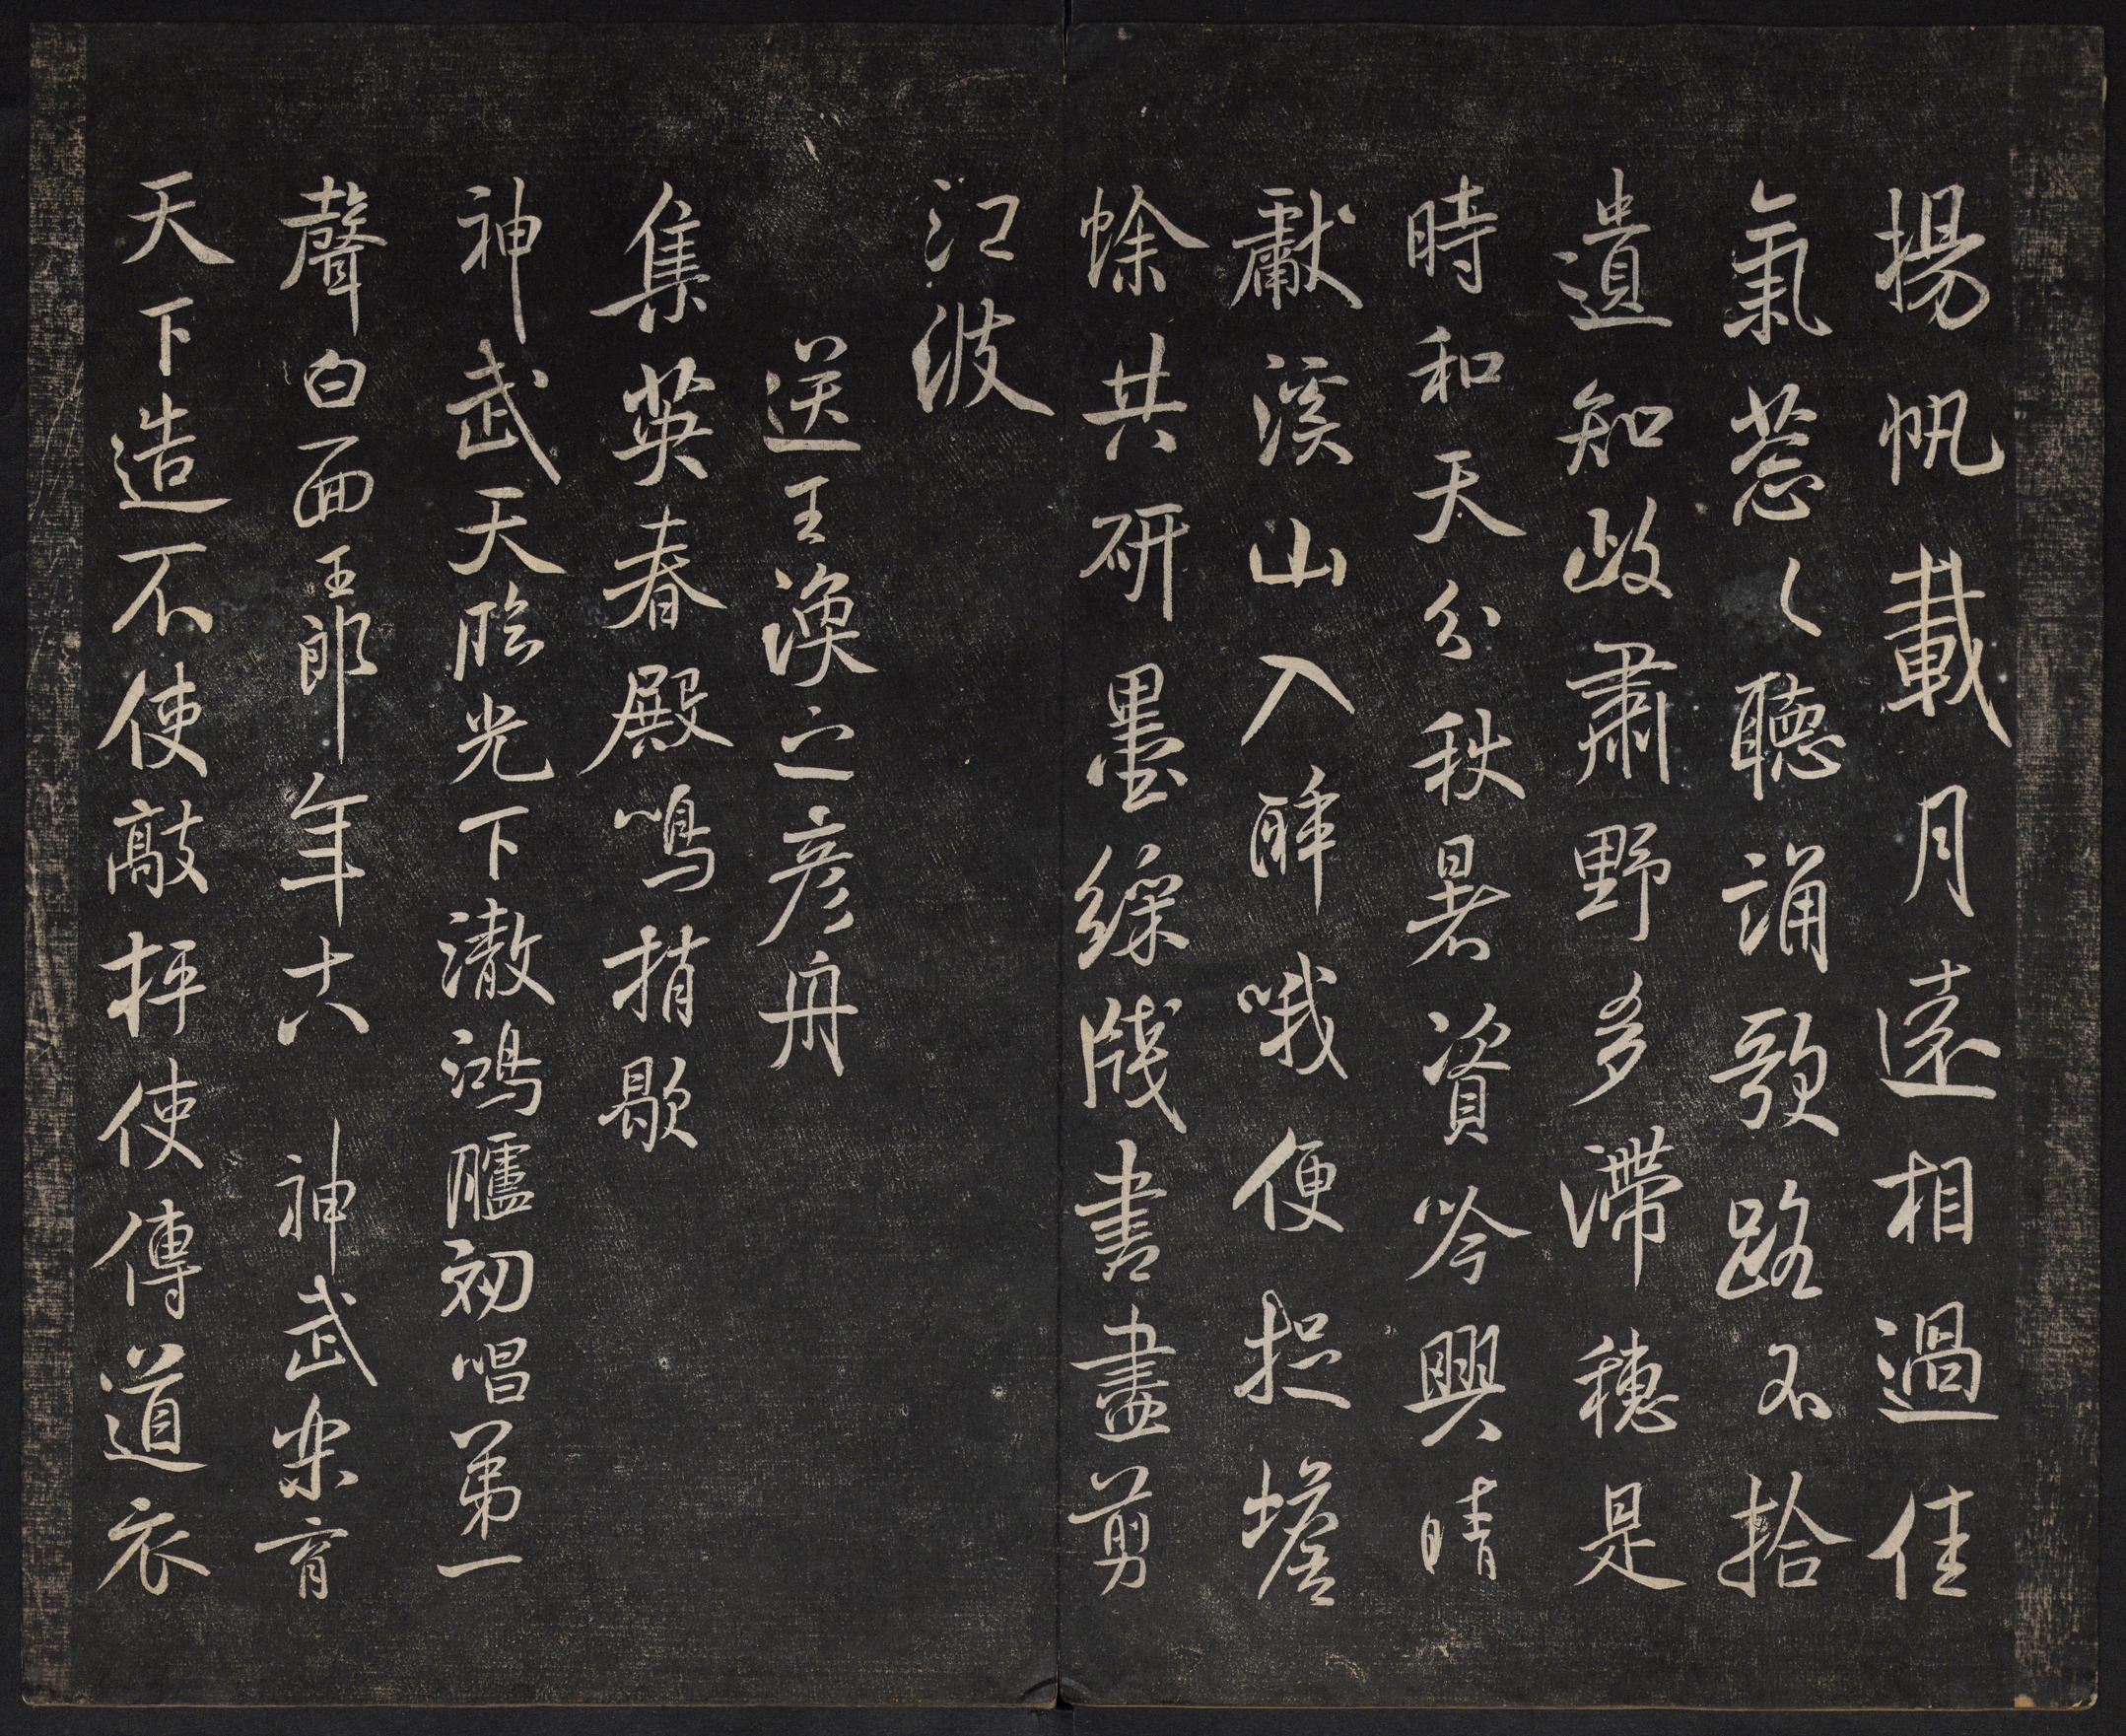 揚帆載月遠相過佳
氣葱〻聽誦歌路不拾
遺知政肅野多滯穗是
時和天分秋暑資吟興晴
獻溪山入醉哦便捉蟾
蜍共研墨綵牋書盡剪
江波
送王渙之彥舟
集英春殿鳴捎歇
神武天臨光下澈鴻臚初唱第一
聲白面王郎年十八神武樂育
天下造不使敲抨使傳道衣